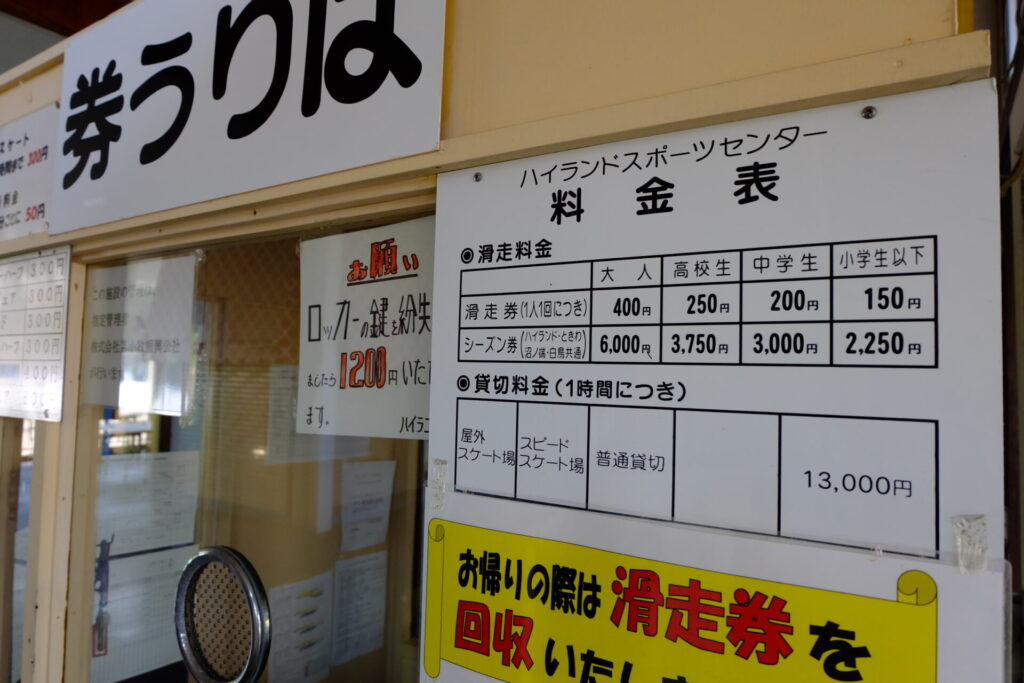 券うりば
スケート
時間まで 300円
料金
分ごとに 50円
ーハーフ 300円
ュア 300円
ド 300円
ハーフ 400円
400円
お願い
ロッカーの鍵を紛失
ましたら1200円いただ
ます。
ハイラン
この施設の管理は、
指定管理
ハイランドスポーツセンター
料金表
◉滑走料金
大人 高校生 中学生 小学生以下
滑走券(1人1回につき) 400円 250円 200円 150円
シーズン券(ハイランド・ときわ 沼ノ端・白鳥共通) 6,000円 3,750円 3,000円 2,250円
◉貸切料金(1時間につき)
屋外スケート場 スピードスケート場 普通貸切 13,000円
お帰りの際は滑走券を
回収いたしま